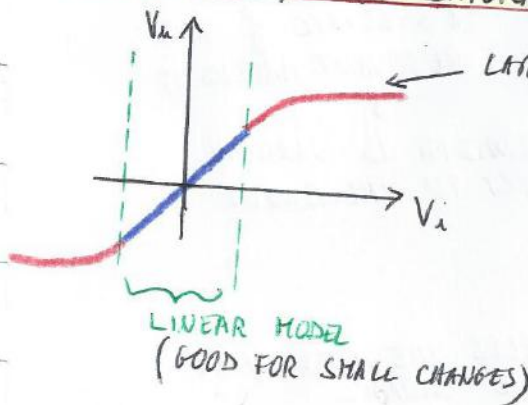 Vu
LAR
Vi
LINEAR MODEL
(GOOD FOR SMALL CHANGES)